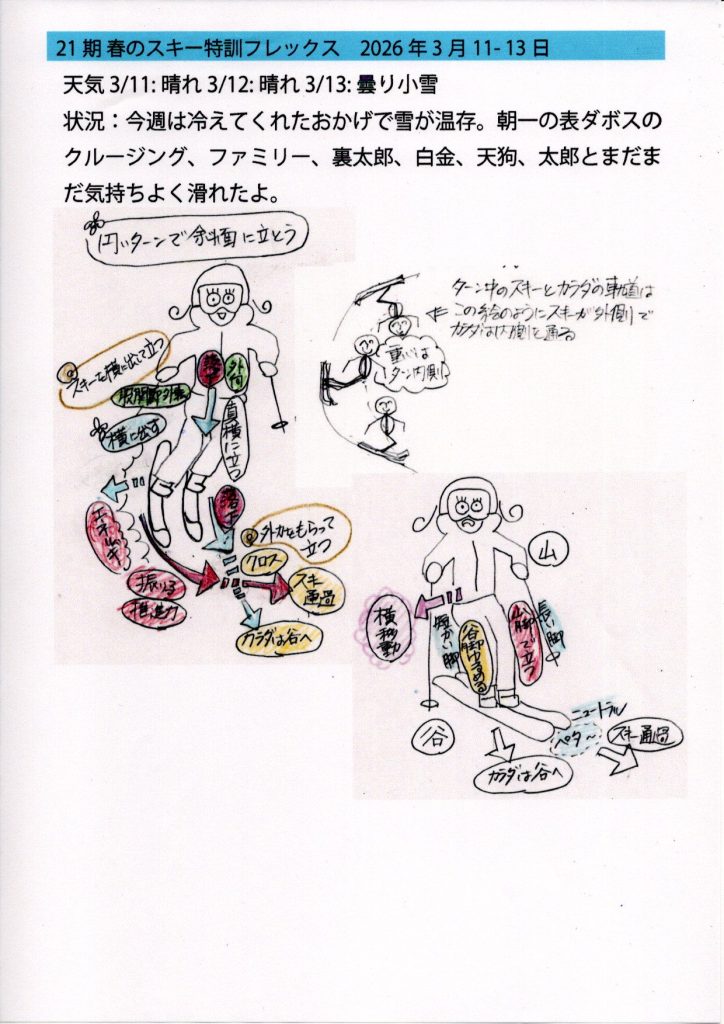 21 期 春のスキー特訓フレックス　2026 年 3 月 11- 13 日
天気 3/11: 晴れ 3/12: 晴れ 3/13: 曇り小雪
状況：今週は冷えてくれたおかげで雪が温存。朝一の表ダボスの
クルージング、ファミリー、裏太郎、白金、天狗、太郎とまだま
だ気持ちよく滑れたよ。
円いターンで斜面に立とう
ターン中のスキーとカラダの軌道は
この絵のようにスキーが外側で
カラダは内側を通る
重心は
ターン内側
スキーを横に出して立つ
落下
外向
股関節外転
横に出す
真横に立つ
落下
外力をもらって
立つ
クロス
振り子
推進力
スキー
通過
カラダは谷へ
山
横移動
短かい脚
谷脚ゆるめる
山脚で立つ
長い脚
谷
ニュートラル
ペター
スキー通過
カラダは谷へ